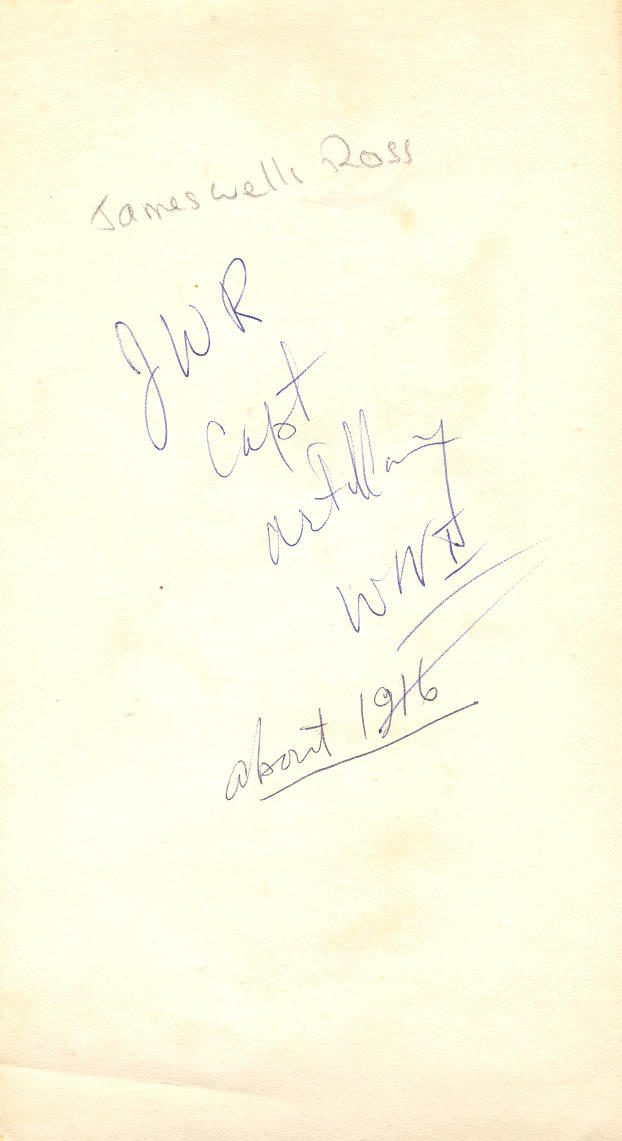 James Wells Ross
JWR
Capt
artillary
WW II
about 1946